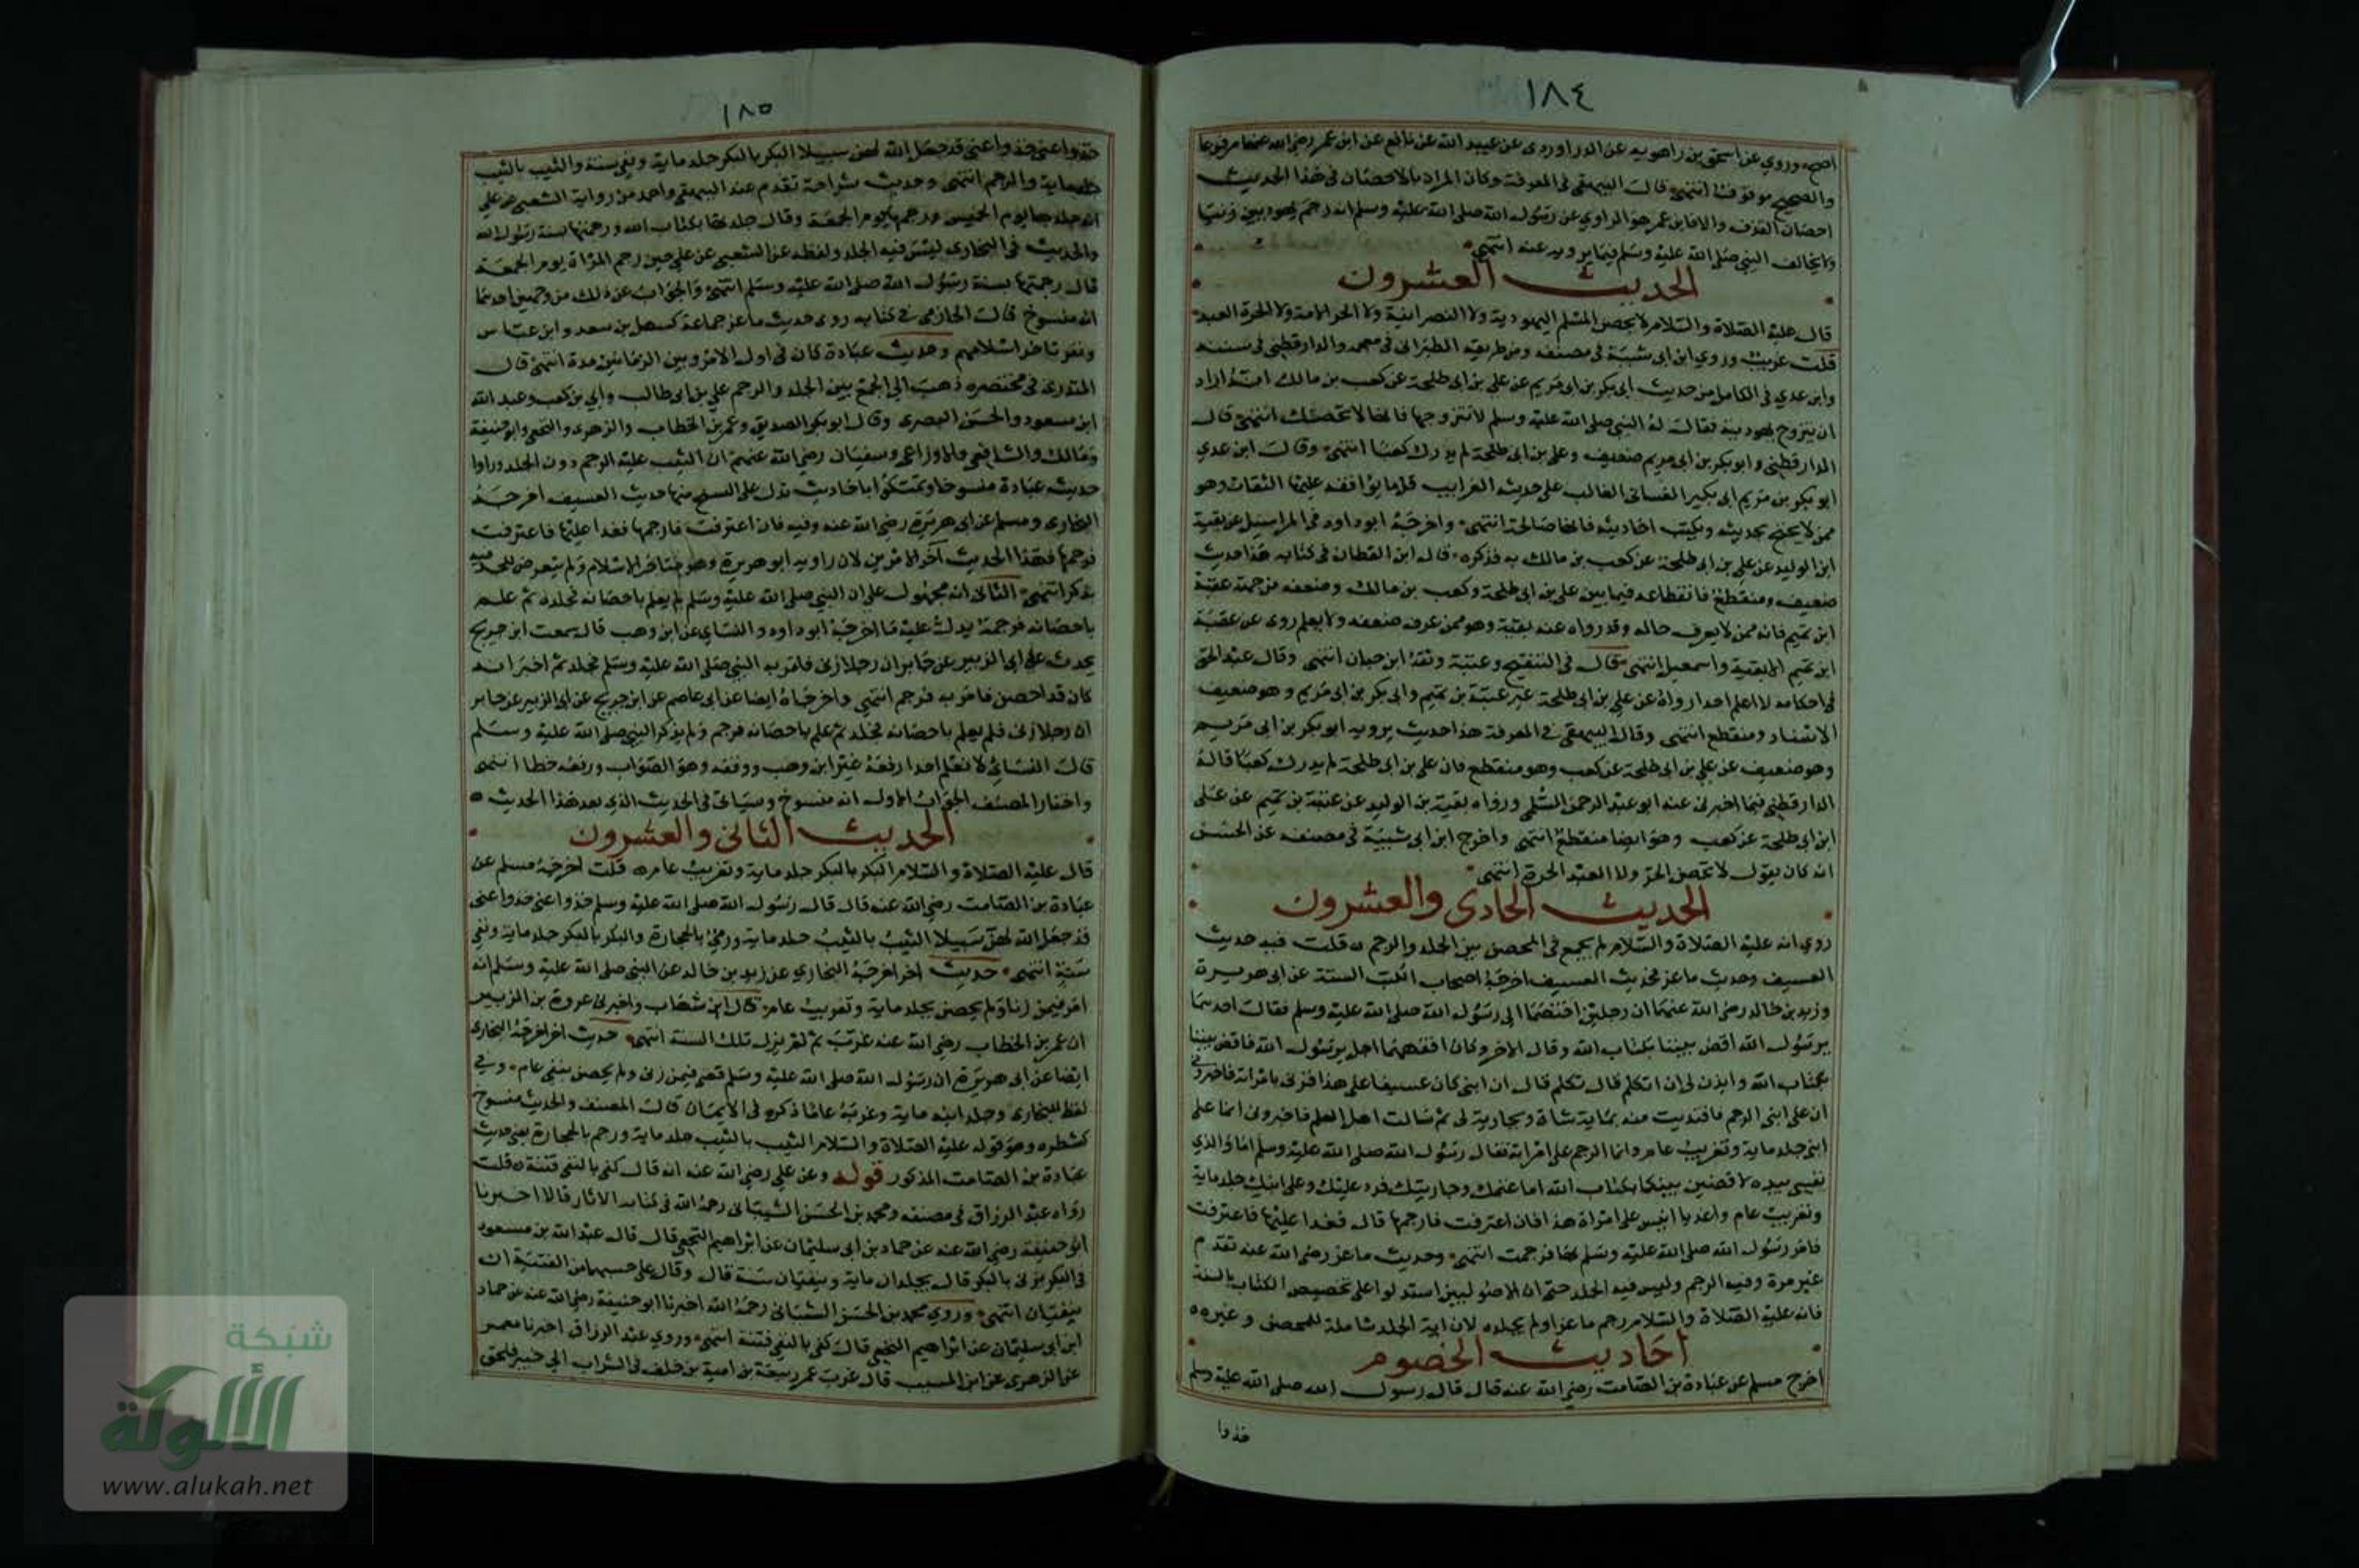 ١٨٤
اصح، وروي عن اسحق بن راهويه عن الدراوردى عن عبيد الله عن نافع عن ابن عمر رضي الله عنهما مرفوعا
والصحيح موقوف انتهى قال البيهقى فى المعرفة وكان المراد بالاحصان فى هذا الحديث
احصان القذف والا فابن عمر هو الراوي عن رسول الله صلى الله عليه وسلم انه رجم يهوديين زنيا
ولا يخالف النبي صلى الله عليه وسلم فيما يرويه عنه انتهى
الحديث العشرون
قال عليه الصلاة والسلام لا يحصن المسلم اليهودية ولا النصرانية ولا الحر الامة ولا الحرة العبد
قلت غريب وروي ابن ابى شيبة فى مصنفه ومن طريقه الطبرانى فى معجمه والدارقطنى فى سننه
وابن عدي فى الكامل من حديث ابى بكر بن ابى مريم عن على بن ابى طلحة عن كعب بن مالك انه اراد
ان يتزوج يهودية فقال له النبي صلى الله عليه وسلم لا تتزوجها فانها لا تحصنك انتهى قال
الدارقطنى وابو بكر بن ابى مريم ضعيف وعلى بن ابى طلحة لم يدرك كعبا انتهى وقال ابن عدي
ابو بكر بن مريم ابى بكير الغسانى الغالب على حديثه الغرايب قل ما يوافقه عليها الثقات وهو
ممن لا يحتج بحديثه ويكتب احاديثه فانها صالحة انتهى واخرجه ابو داود فى المراسيل عن بقية
ابن الوليد عن على بن ابى طلحة عن كعب بن مالك به فذكره قال ابن القطان فى كتابه هذا حديث
ضعيف ومنقطع فانقطاعه فيما بين على بن ابى طلحة وكعب بن مالك وضعفه من جهة عتبة
ابن تميم فانه ممن لا يعرف حاله وقد رواه عنه بقية وهو ممن عرف ضعفه ولا يعلم روى عن عتبة
ابن تميم الا بقية واسمعيل انتهى قال فى التنقيح وعتبة وثقه ابن حبان انتهى وقال عبد الحق
فى احكامه لا اعلم احدا رواه عن على بن ابى طلحة غير عتبة بن تميم وابى بكر بن ابى مريم وهو ضعيف
الاسناد ومنقطع انتهى وقال البيهقى فى المعرفة هذا حديث يرويه ابو بكر بن ابى مريم
وهو ضعيف عن على بن ابى طلحة عن كعب وهو منقطع فان على بن ابى طلحة لم يدرك كعبا قاله
الدارقطنى فيما اخبرنى عنه ابو عبد الرحمن السلمى ورواه بقية بن الوليد عن عتبة بن تميم عن على
ابن ابى طلحة عن كعب وهو ايضا منقطع انتهى واخرج ابن ابى شيبة فى مصنفه عن الحسن
انه كان يقول لا تحصن الحر ولا العبد الحرة انتهى
الحديث الحادى والعشرون
روي انه عليه الصلاة والسلام لم يجمع فى المحصن بين الجلد والرجم قلت فيه حديث
العسيف وحديث ماعز فحديث العسيف اخرجه اصحاب الكتب الستة عن ابى هريرة
وزيد بن خالد رضي الله عنهما ان رجلين اختصما الى رسول الله صلى الله عليه وسلم فقال احدهما
يرسول الله اقض بيننا بكتاب الله وقال الاخر وكان افقههما اجل يرسول الله فاقض بيننا
بكتاب الله وايذن لى ان اتكلم قال تكلم قال ان ابنى كان عسيفا على هذا فزنى بامراته فاخبرونى
ان على ابنى الرجم فافتديت منه بماية شاة وبجارية لى ثم سالت اهل العلم فاخبرونى انما على
ابنى جلد ماية وتغريب عام وانما الرجم على امراته فقال رسول الله صلى الله عليه وسلم اما والذي
نفسى بيده لاقضين بينكما بكتاب الله اما غنمك وجاريتك فرد عليك وعلى ابنك جلد ماية
وتغريب عام واغد يا انيس على امراة هذا فان اعترفت فارجمها قال فغدا عليها فاعترفت
فامر رسول الله صلى الله عليه وسلم بها فرجمت انتهى وحديث ماعز رضي الله عنه تقدم
غير مرة وفيه الرجم وليس فيه الجلد حتى ان الاصوليين استدلوا على تخصيص الكتاب بالسنة
فانه عليه الصلاة والسلام رجم ماعزا ولم يجلده لان اية الجلد شاملة للمحصن وغيره
احاديث الخصوم
اخرج مسلم عن عبادة بن الصامت رضي الله عنه قال قال رسول الله صلى الله عليه وسلم
خذوا
١٨٥
خذوا عنى خذوا عنى قد جعل الله لهن سبيلا البكر بالبكر جلد ماية ونفى سنة والثيب بالثيب
جلد ماية والرجم انتهى وحديث شراحة تقدم عند البيهقى واحمد من رواية الشعبى عن على
انه جلدها يوم الخميس ورجمها يوم الجمعة وقال جلدتها بكتاب الله ورجمتها بسنة رسول الله
والحديث فى البخارى ليس فيه الجلد ولفظه عن الشعبى عن على حين رجم المراة يوم الجمعة
قال رجمتها بسنة رسول الله صلى الله عليه وسلم انتهى والجواب عن ذلك من وجهين احدهما
انه منسوخ قال الحازمى فى كتابه روى حديث ماعز جماعة كسهل بن سعد وابن عباس
ونفر تاخر اسلامهم وحديث عبادة كان فى اول الامر وبين الزمانين مدة انتهى قال
المنذرى فى مختصره ذهب الى الجمع بين الجلد والرجم على بن ابى طالب وابي بن كعب وعبد الله
ابن مسعود والحسن البصرى وقال ابو بكر الصديق وعمر بن الخطاب والزهرى والنخعى وابو حنيفة
ومالك والشافعى والاوزاعى وسفيان رضي الله عنهم ان الثيب عليه الرجم دون الجلد وراوا
حديث عبادة منسوخا وتمسكوا باحاديث تدل على النسخ منها حديث العسيف اخرجه
البخارى ومسلم عن ابى هريرة رضي الله عنه وفيه فان اعترفت فارجمها فغدا عليها فاعترفت
فرجمها فهذا الحديث آخر الامرين لان راويه ابو هريرة وهو متاخر الاسلام ولم يتعرض للجلد فيه
بذكر انتهى الثانى انه محمول على ان النبي صلى الله عليه وسلم لم يعلم باحصانه فجلده ثم علم
باحصانه فرجمه يدل عليه ما اخرجه ابو داود والنساى عن ابن وهب قال سمعت ابن جريج
يحدث على ابى الزبير عن جابر ان رجلا زنى فامر به النبي صلى الله عليه وسلم فجلد ثم اخبر انه
كان قد احصن فامر به فرجم انتهى واخرجاه ايضا عن ابى عاصم عن ابن جريج عن ابى الزبير عن جابر
ان رجلا زنى فلم يعلم باحصانه فجلد ثم علم باحصانه فرجم ولم يذكر النبي صلى الله عليه وسلم
قال النسائى لا نعلم احدا رفعه غير ابن وهب ووقفه وهو الصواب ورفعه خطا انتهى
واختار المصنف الجواب الاول انه منسوخ وسياتى فى الحديث الذي بعد هذا الحديث
الحديث الثانى والعشرون
قال عليه الصلاة والسلام البكر بالبكر جلد ماية وتغريب عام قلت اخرجه مسلم عن
عبادة بن الصامت رضي الله عنه قال قال رسول الله صلى الله عليه وسلم خذوا عنى خذوا عنى
قد جعل الله لهن سبيلا الثيب بالثيب جلد ماية ورمى بالحجارة والبكر بالبكر جلد ماية ونفى
سنة انتهى حديث اخر اخرجه البخاري عن زيد بن خالد عن النبي صلى الله عليه وسلم انه
امر فيمن زنا ولم يحصن بجلد ماية وتغريب عام قال ابن شهاب واخبرنى عروة بن الزبير
ان عمر بن الخطاب رضي الله عنه غرب ثم لم تزل تلك السنة انتهى حديث اخر اخرجه البخارى
ايضا عن ابى هريرة ان رسول الله صلى الله عليه وسلم قضى فيمن زنى ولم يحصن بنفى عام وفي
لفظ للبخارى وجلد ابنه ماية وغربه عاما ذكره فى الايمان قال المصنف والحديث منسوخ
كشطره وهو قوله عليه الصلاة والسلام الثيب بالثيب جلد ماية ورجم بالحجارة يعنى حديث
عبادة بن الصامت المذكور قوله وعن على رضي الله عنه انه قال كفى بالنفى فتنة قلت
رواه عبد الرزاق فى مصنفه ومحمد بن الحسن الشيبانى رحمه الله فى كتاب الاثار قالا اخبرنا
ابو حنيفة رضي الله عنه عن حماد بن ابى سليمان عن ابراهيم النخعى قال قال عبد الله بن مسعود
فى البكر يزنى بالبكر قال يجلدان ماية وينفيان سنة قال وقال على حسبهما من الفتنة ان
ينفيان انتهى وروي محمد بن الحسن الشيبانى رحمه الله اخبرنا ابو حنيفة رضي الله عنه عن حماد
ابن ابى سليمان عن ابراهيم النخعى قال كفى بالنفى فتنة انتهى وروي عبد الرزاق اخبرنا معمر
عن الزهرى عن ابن المسيب قال غرب عمر ربيعة بن امية بن خلف فى الشراب الى خيبر فلحق
شبكة
الألوكة
www.alukah.net